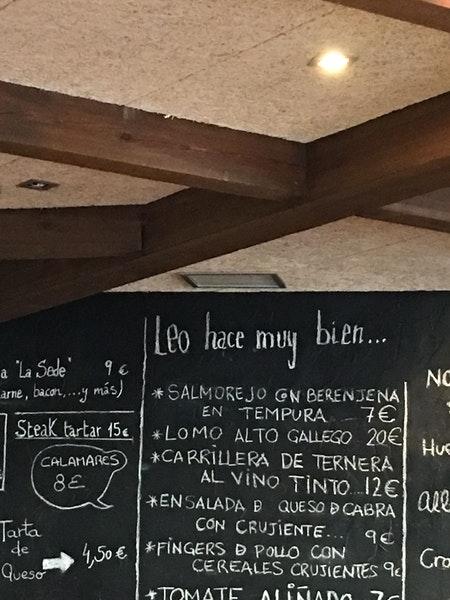 a "La Sede" 9 €
arne, bacon,...y más)
Steak tartar 15€
CALAMARES
8€
Tarta
de
Queso
4,50 €
Leo hace muy bien...
*SALMOREJO CON BERENJENA
EN TEMPURA 7€
*LOMO ALTO GALLEGO 20€
*CARRILLERA DE TERNERA
AL VINO TINTO...12€
*ENSALADA D QUESO D CABRA
CON CRUJIENTE... 9€
*FINGERS D POLLO CON
CEREALES CRUJIENTES 9€
*TOMATE ALIÑADO 7€
NO
Hue
all
Cro